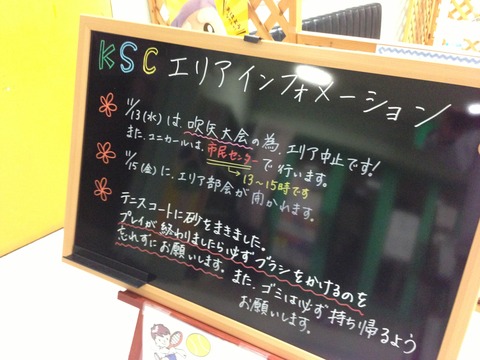 KSC エリアインフォメーション
11/13(水)は、吹矢大会の為エリア中止です!
また、ユニカールは、市民センターで行います。
→13〜15時です
11/15(金)に、エリア部会が開かれます。
テニスコートに砂をまきました。
プレイが終わりましたら必ずブラシをかけるのを
忘れずにお願いします。また、ゴミは必ず持ち帰るよう
お願いします。